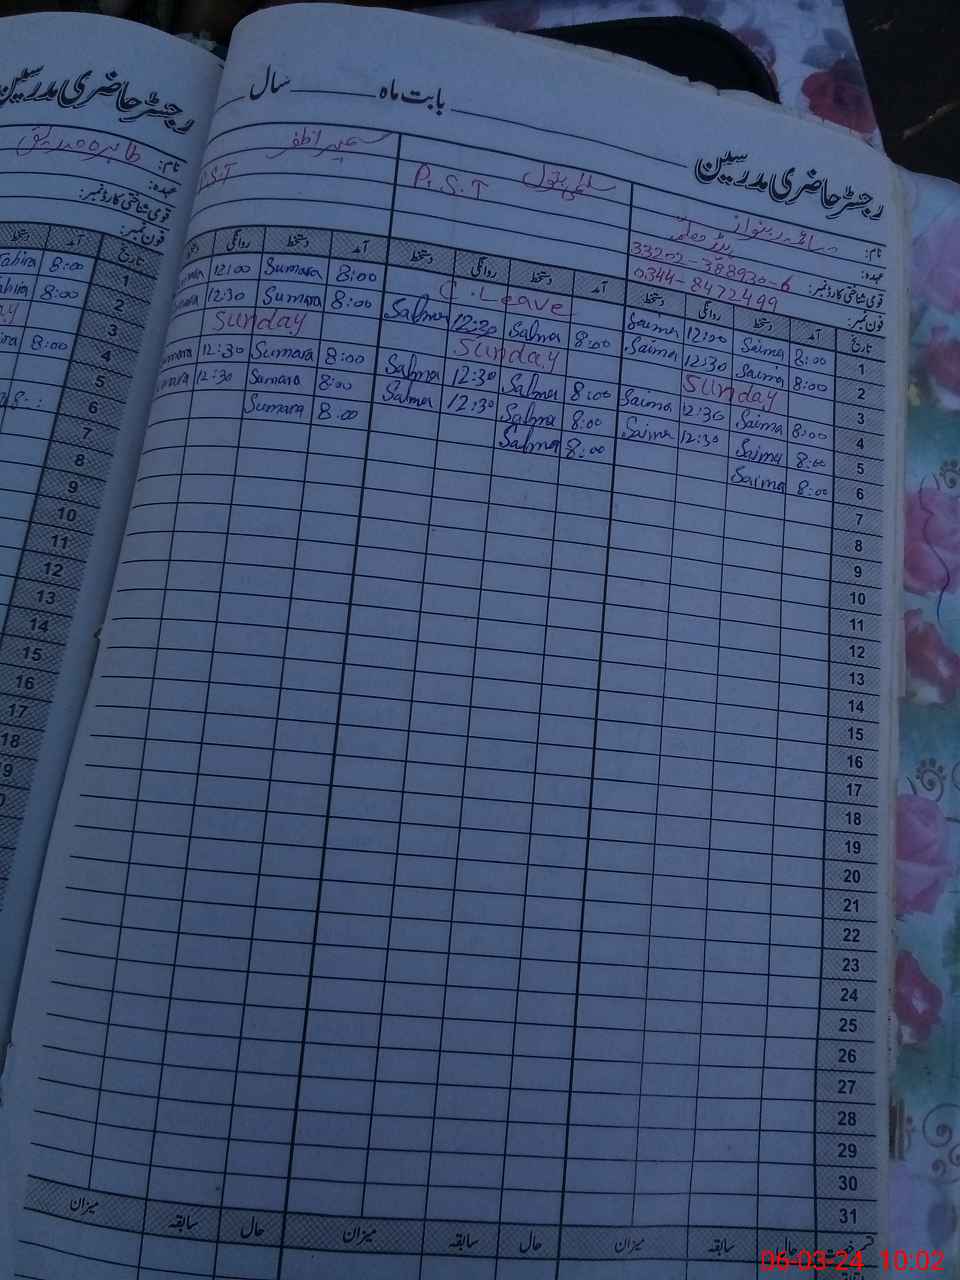 رجسٹر حاضری مدرسین بابت ماہ سال
رجسٹر حاضری مدرسین
نام: صائمہ رب نواز
عہدہ: ہیڈ معلمہ
قومی شناختی کارڈ نمبر: 33202-388930-6
فون نمبر: 0344-8472499
سلمیٰ بتول
P.S.T
سمیرا ظفر
P.S.T
نام: طاہرہ صدیق
عہدہ:
قومی شناختی کارڈ نمبر:
فون نمبر:
تاریخ آمد دستخط روانگی دستخط آمد دستخط روانگی دستخط آمد دستخط روانگی
1 8:00 Saima 12:00 Saima C. Leave 8:00 Sumara 12:00
2 8:00 Saima 12:30 Saima 8:00 Salma 12:30 Salma 8:00 Sumara 12:30
3 Sunday Sunday Sunday
4 8:00 Saima 12:30 Saima 8:00 Salma 12:30 Salma 8:00 Sumara 12:30
5 8:00 Saima 12:30 Saima 8:00 Salma 12:30 Salma 8:00 Sumara 12:30
6 8:00 Saima 8:00 Salma 8:00 Sumara
7
8
9
10
11
12
13
14
15
16
17
18
19
20
21
22
23
24
25
26
27
28
29
30
31
حال سابقہ میزان حال سابقہ میزان حال سابقہ میزان
تاریخ آمد
1 8:00 Tahira
2 8:00
3
4 8:00
5
6
7
8
9
10
11
12
13
14
15
16
17
18
06-03-24 10:02